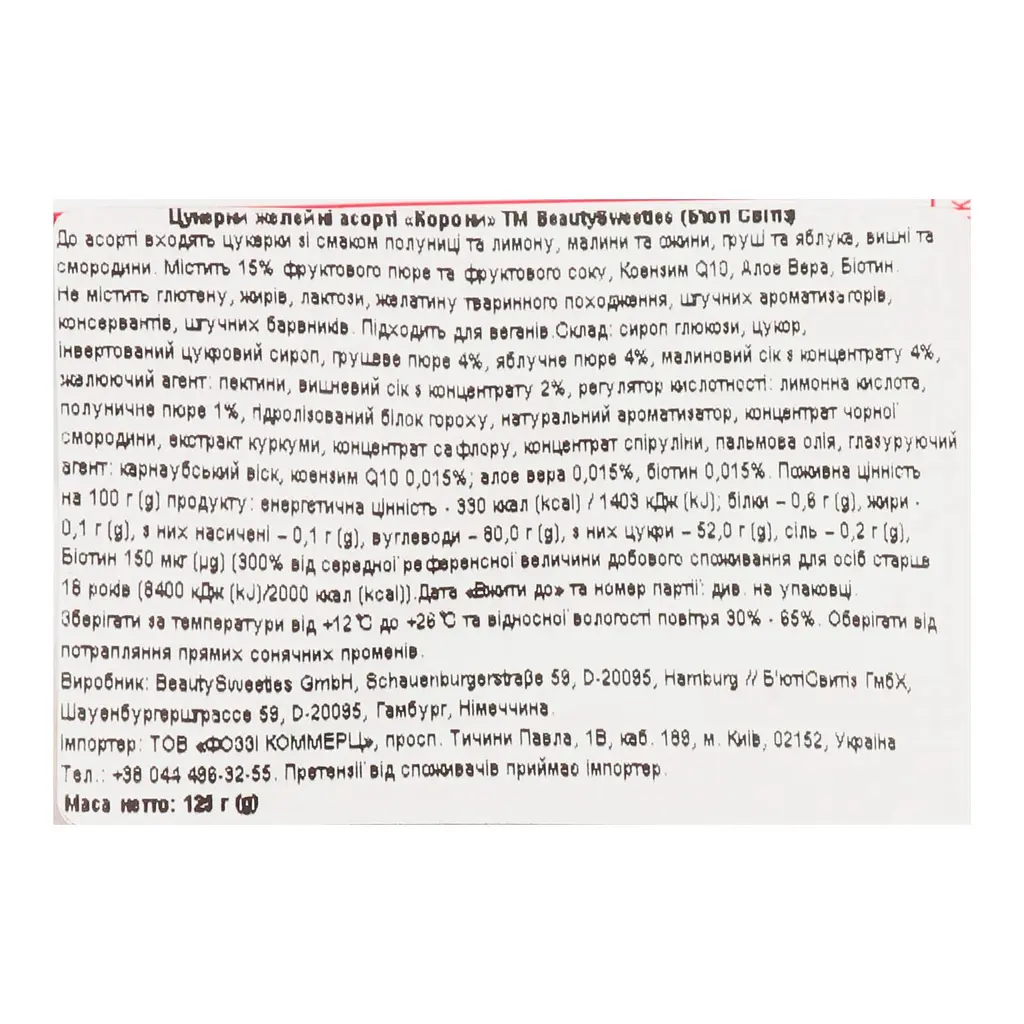 Цукерки желейні асорті «Корони» ТМ BeautySweeties (Б'юті Світіз)
До асорті входять цукерки зі смаком полуниці та лимону, малини та ожини, груші та яблука, вишні та
смородини. Містить 15% фруктового пюре та фруктового соку, Коензим Q10, Алое Вера, Біотин.
Не містить глютену, жирів, лактози, желатину тваринного походження, штучних ароматизаторів,
консервантів, штучних барвників. Підходить для веганів.Склад: сироп глюкози, цукор,
інвертований цукровий сироп, грушеве пюре 4%, яблучне пюре 4%, малиновий сік з концентрату 4%,
желюючий агент: пектини, вишневий сік з концентрату 2%, регулятор кислотності: лимонна кислота,
полуничне пюре 1%, гідролізований білок гороху, натуральний ароматизатор, концентрат чорної
смородини, екстракт куркуми, концентрат сафлору, концентрат спіруліни, пальмова олія, глазуруючий
агент: карнаубський віск, коензим Q10 0,015%; алое вера 0,015%, біотин 0,015%. Поживна цінність
на 100 г (g) продукту: енергетична цінність - 330 ккал (kcal) / 1403 кДж (kJ); білки – 0,6 г (g), жири -
0,1 г (g), з них насичені – 0,1 г (g), вуглеводи – 80,0 г (g), з них цукри – 52,0 г (g), сіль – 0,2 г (g),
Біотин 150 мкг (µg) (300% від середньої референсної величини добового споживання для осіб старше
18 років (8400 кДж (kJ)/2000 ккал (kcal)).Дата «Вжити до» та номер партії: див. на упаковці.
Зберігати за температури від +12°C до +26°C та відносної вологості повітря 30% - 65%. Оберігати від
потрапляння прямих сонячних променів.
Виробник: BeautySweeties GmbH, Schauenburgerstraße 59, D-20095, Hamburg // Б'ютіСвитіз ГмбХ,
Шауенбургерштрассе 59, D-20095, Гамбург, Німеччина.
Імпортер: ТОВ «ФОЗЗІ КОММЕРЦ», просп. Тичини Павла, 1В, каб. 189, м. Київ, 02152, Україна
Тел.: +38 044 496-32-55. Претензії від споживачів приймає імпортер.
Маса нетто: 125 г (g)